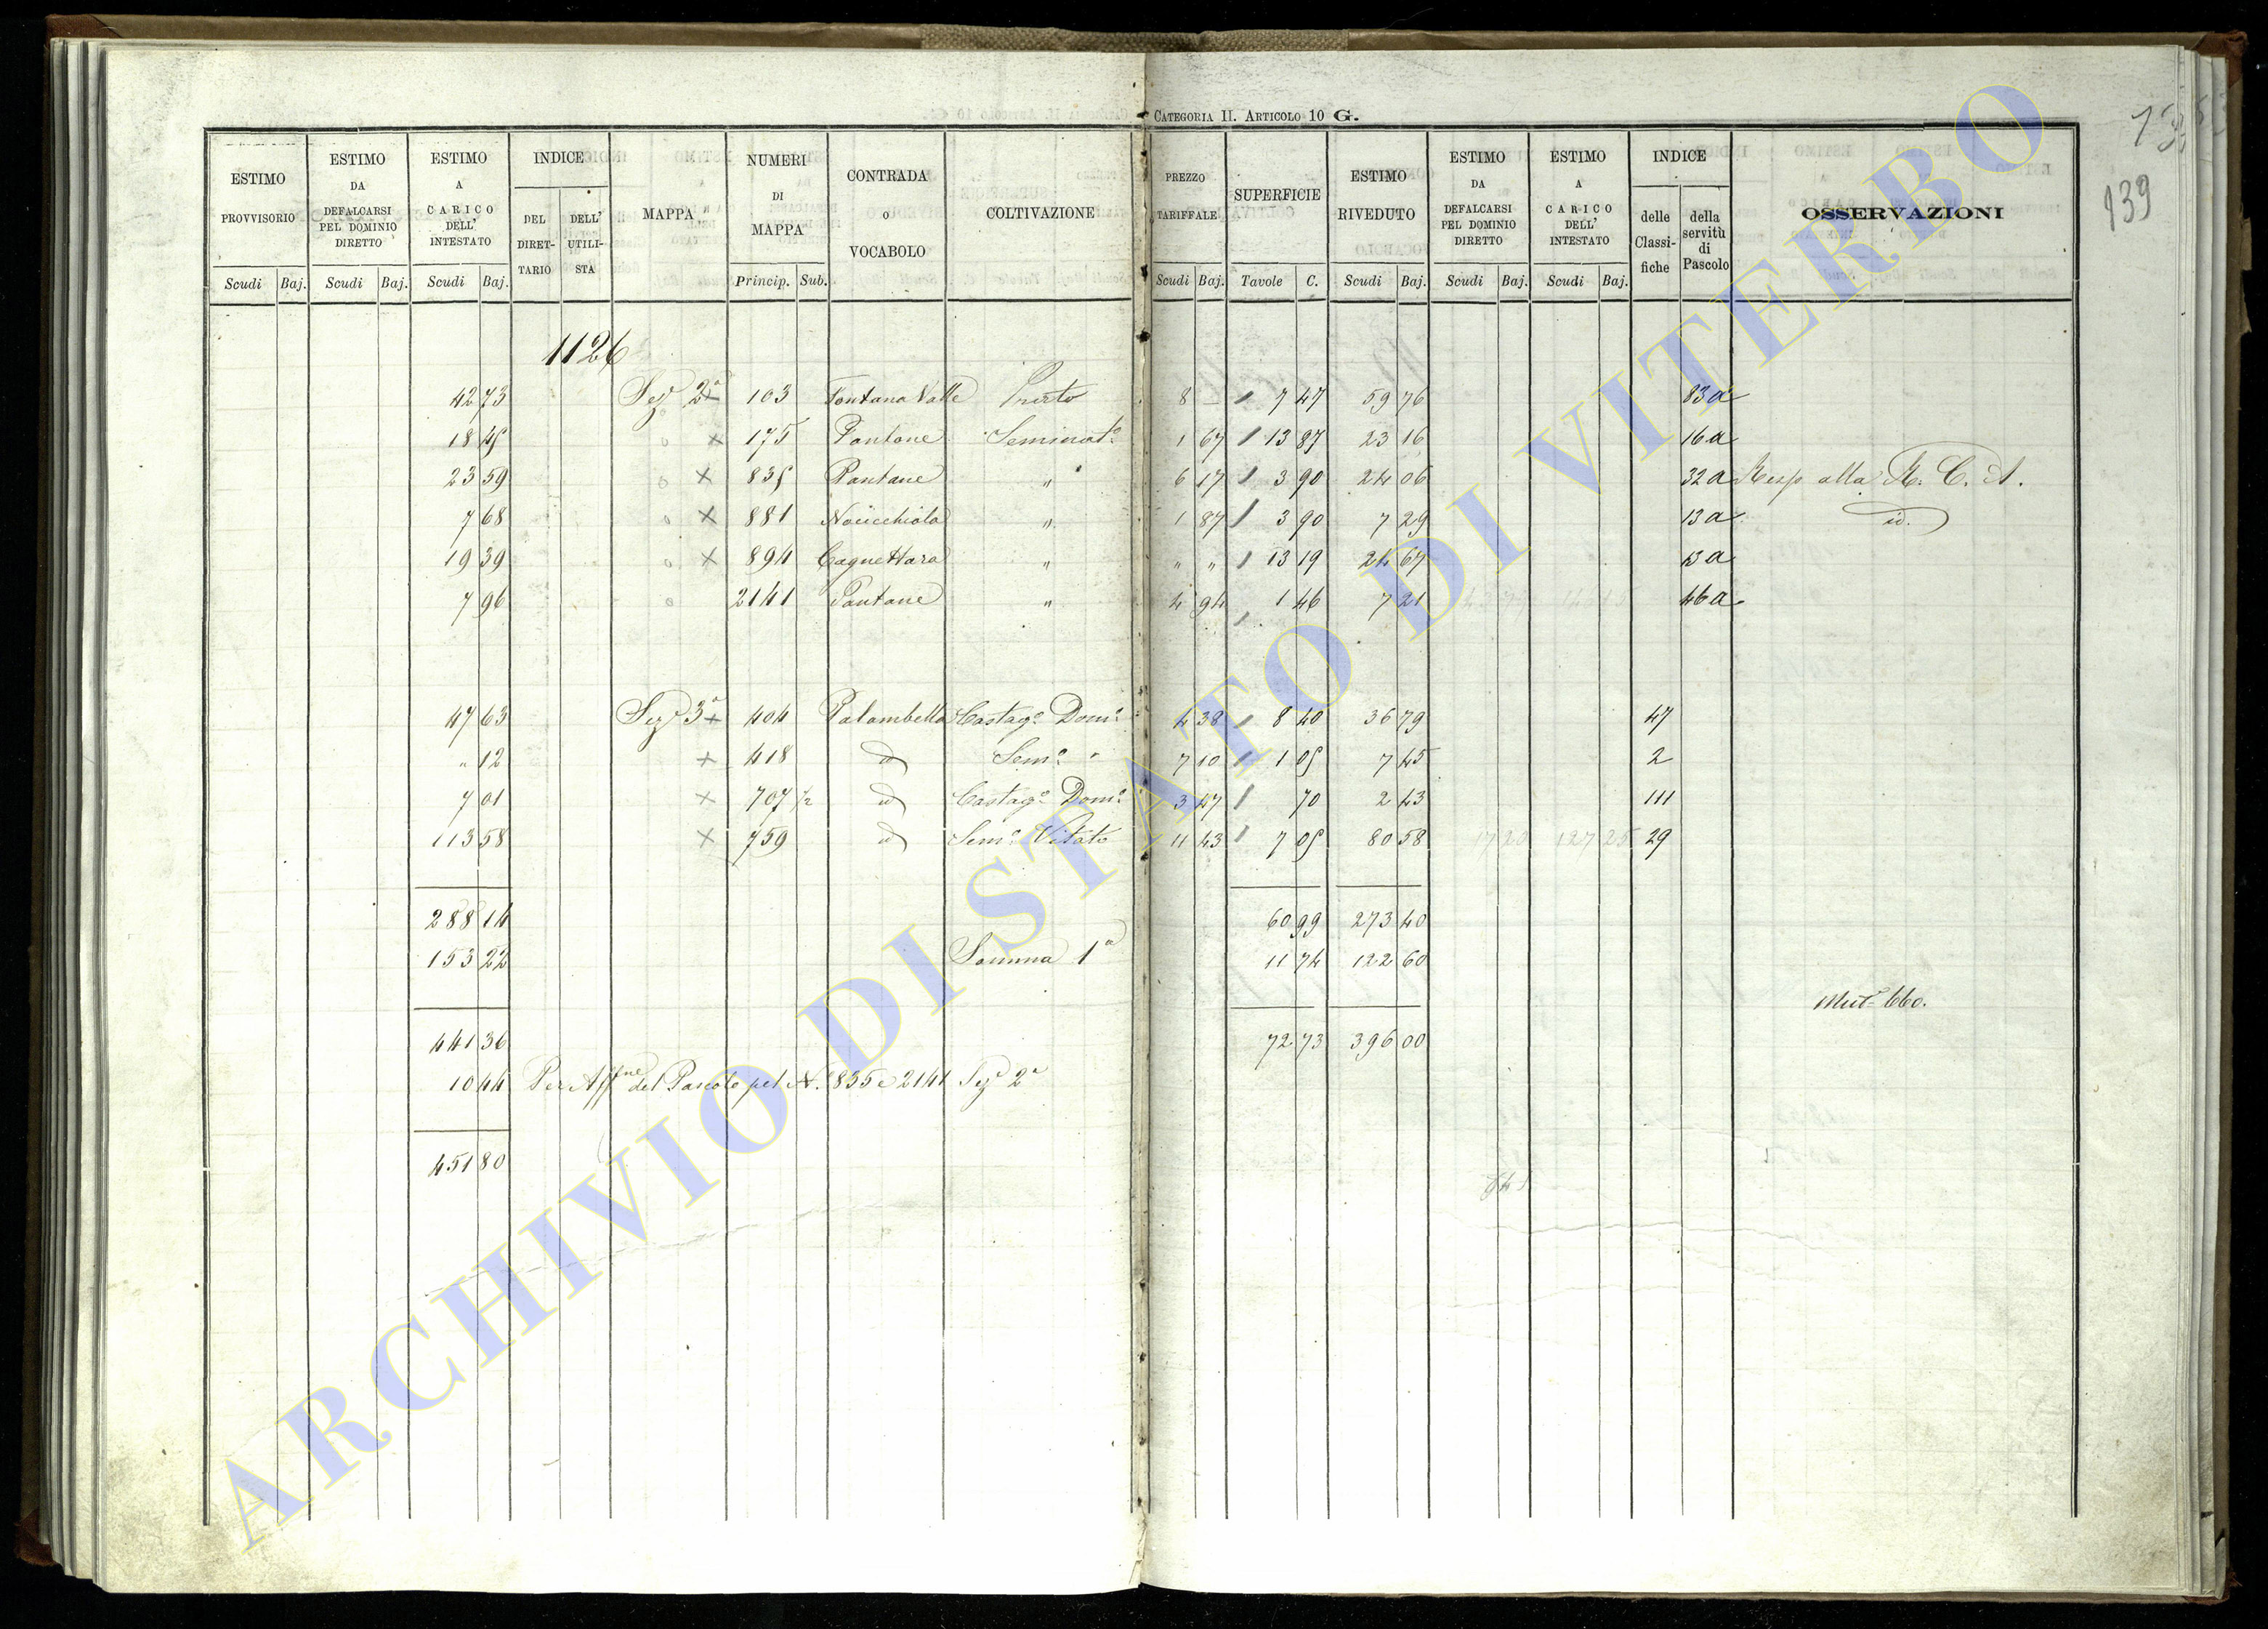 CATEGORIA II. ARTICOLO 10 G.
139
ESTIMO PROVVISORIO | ESTIMO DA DEFALCARSI PEL DOMINIO DIRETTO | ESTIMO A CARICO DELL' INTESTATO | INDICE DEL DIRETTARIO | DELL' UTILISTA | MAPPA | NUMERI DI MAPPA | CONTRADA o VOCABOLO | COLTIVAZIONE | PREZZO TARIFFALE | SUPERFICIE | ESTIMO RIVEDUTO | ESTIMO DA DEFALCARSI PEL DOMINIO DIRETTO | ESTIMO A CARICO DELL' INTESTATO | INDICE delle Classifiche | della servitù di Pascolo | OSSERVAZIONI
Scudi Baj. | Scudi Baj. | Scudi Baj. | Princip. Sub. | Scudi Baj. | Tavole C. | Scudi Baj. | Scudi Baj. | Scudi Baj.
1126
42 73 Sez. 2a x 103 Fontana Valle Prato 8 – 7 47 59 76 83a
18 45 x 175 Pantane Seminat.o 1 67 13 87 23 16 16a
23 59 x 835 Pantane " 6 17 3 90 24 06 32a Resp alla R. C. A.
7 68 x 881 " 1 87 3 90 7 29 13a id.
19 39 x 894 " " " 13 19 24 67 13a
7 96 2141 Pantane " 4 94 1 46 7 21 46a
47 63 Sez. 3a x 404 Palombella Castag.o Dom.o 4 38 8 40 36 79 47
" 12 x 418 id Sem.o " 7 10 1 05 7 45 2
7 01 x 707 1/2 id Castag.o Dom.o 3 47 70 2 43 111
113 58 x 759 id Sem.o Vitato 11 43 7 05 80 58 17 20 127 25 29
288 14 60 99 273 40
153 22 Somma 1a 11 74 122 60
Mut. 660.
441 36 72 73 396 00
10 44 Per Aff.ne del Pascolo pel N. 835 e 2141 Sez. 2a
451 80
ARCHIVIO DI STATO DI VITERBO